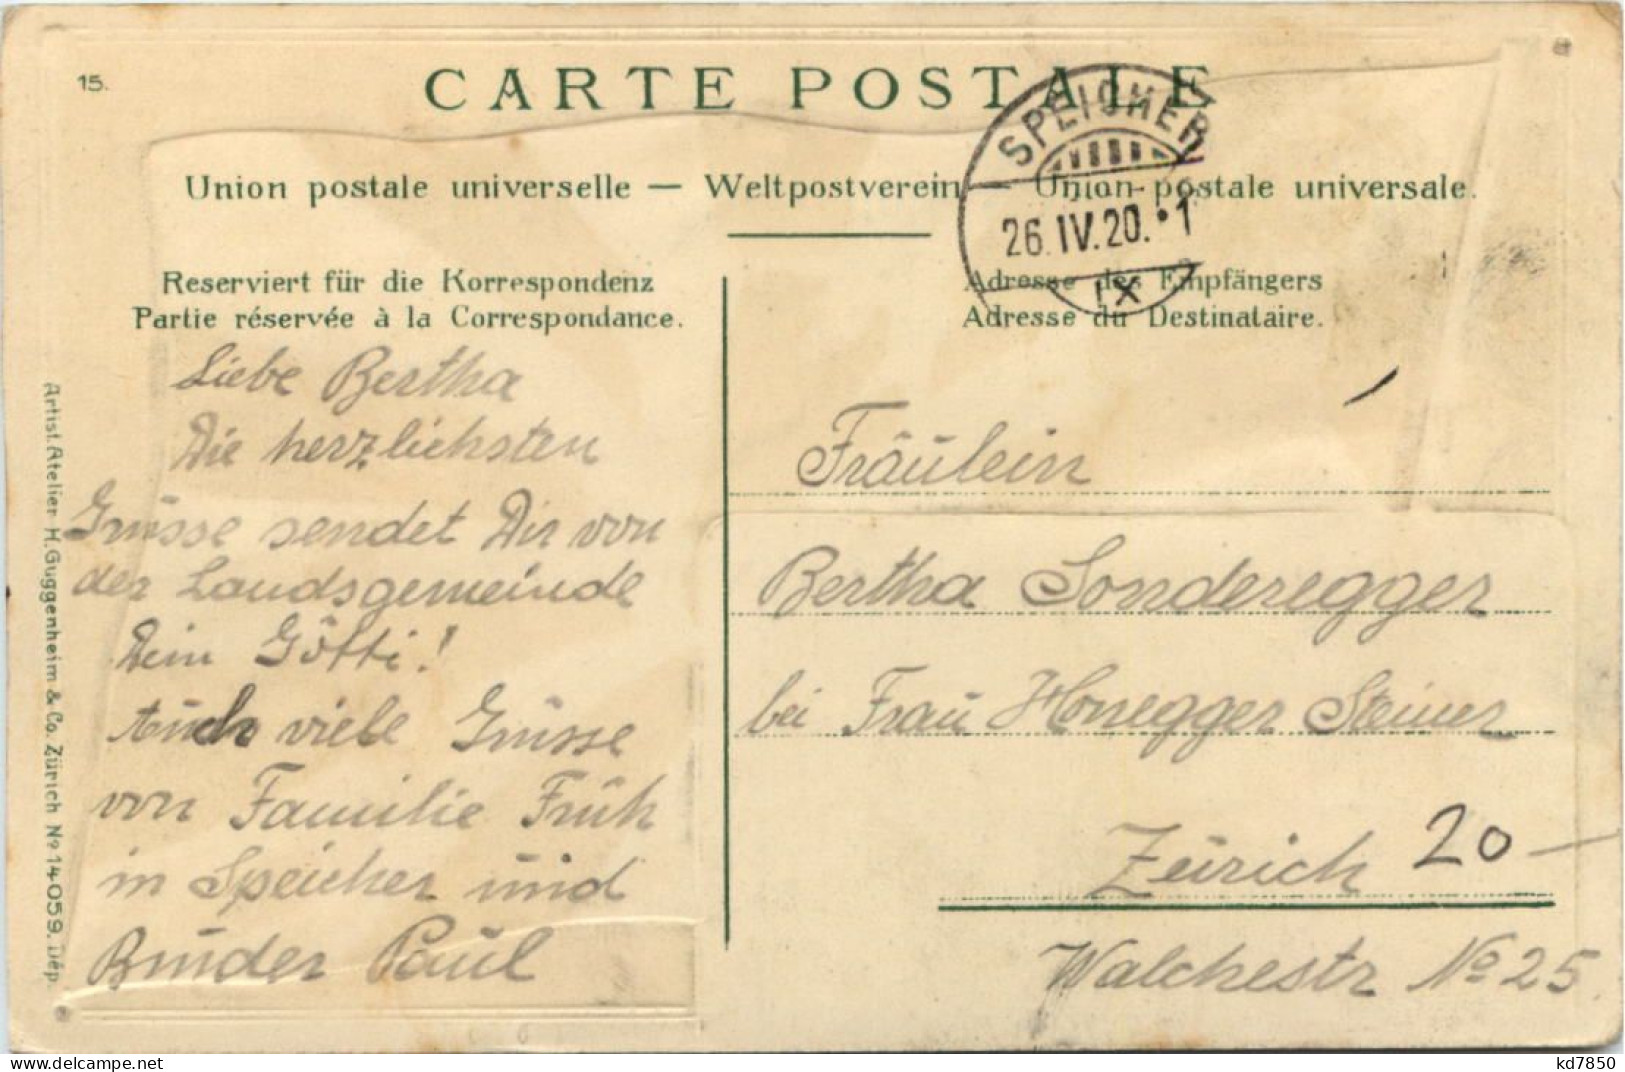 15.
CARTE POSTALE
SPEICHER
26.IV.20.•1
IX
Union postale universelle — Weltpostverein — Union postale universale.
Reserviert für die Korrespondenz
Partie réservée à la Correspondance.
Adresse des Empfängers
Adresse du Destinataire.
Liebe Bertha
Die herzlichsten
Grüsse sendet Dir von
der Landsgemeinde
Dein Götti!
Auch viele Grüsse
von Familie Früh
in Speicher und
Bruder Paul
Fräulein
Bertha Sonderegger
bei Frau Honegger Steiner
Zürich
20-
Walchestr No 25.
Artist. Atelier H. Guggenheim & Co. Zürich No 14059. Dép.
kd7850